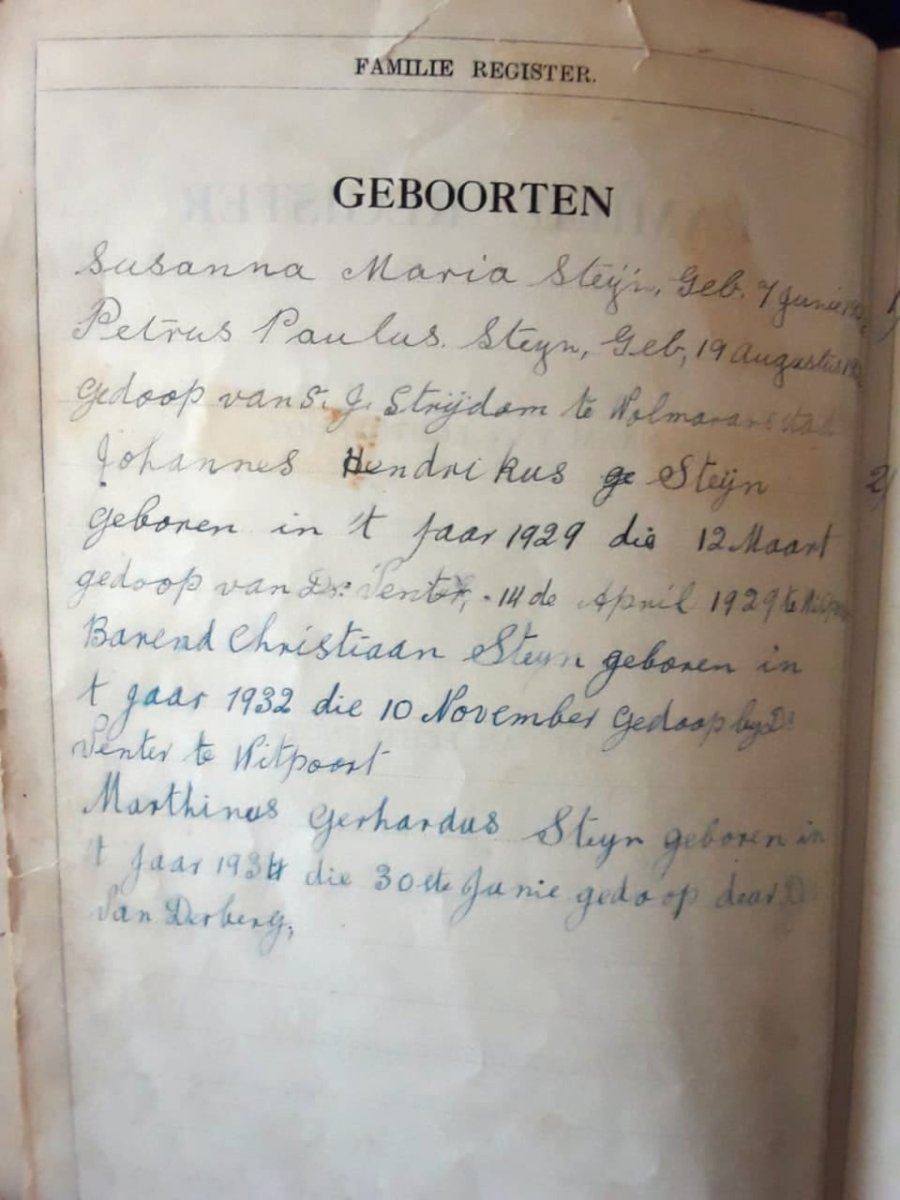 FAMILIE REGISTER.
GEBOORTEN
Susanna Maria Steijn, Geb. 7 Junie
Petrus Paulus. Steyn, Geb, 19 Augustus
gedoop van S. J. Strijdom te Wolmaranstad
Johannes Hendrikus ge Steijn
geboren in 't Jaar 1929 die 12 Maart
gedoop van Ds. Venter, - 14 de April 1929 te
Barend Christiaan Steyn geboren in
't jaar 1932 die 10 November Gedoop by Ds
Venter te Witpoort
Marthinus Gerhardus Steyn geboren in
't Jaar 1934 die 30ste Junie gedoop deur D
Van Derberg,
2)